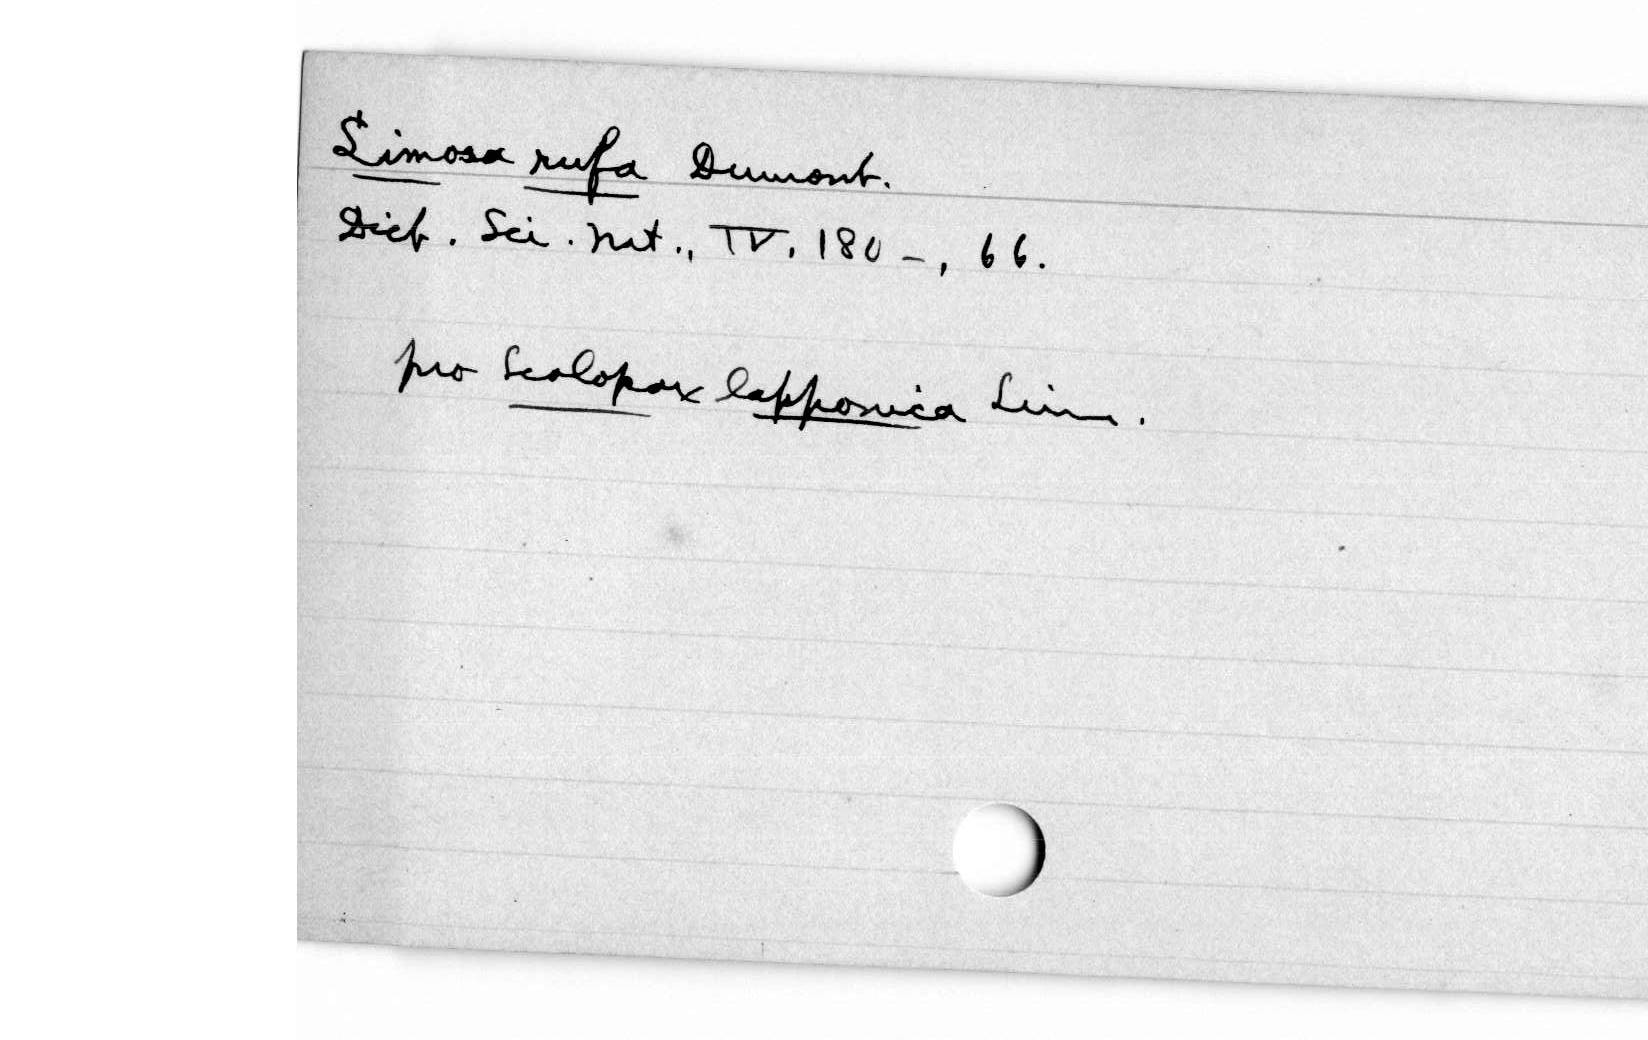 Limosa rufa Dumont.
Dict. Sci. Nat., IV, 180-, 66.
pro Scolopax lapponica Linn.